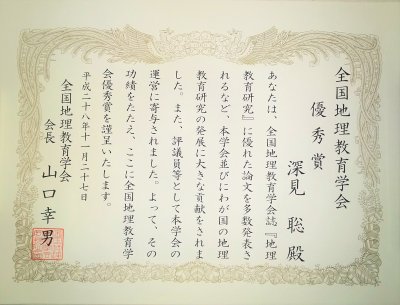 全国地理教育学会
優秀賞
深見 聡 殿
あなたは、全国地理教育学会誌『地理
教育研究』に優れた論文を多数発表さ
れるなど、本学会並びにわが国の地理
教育研究の発展に大きな貢献をされま
した。また、評議員等として本学会の
運営に寄与されました。よって、その
功績をたたえ、ここに全国地理教育学
会優秀賞を謹呈いたします。
平成二十八年十一月二十七日
全国地理教育学会
会長 山口幸男